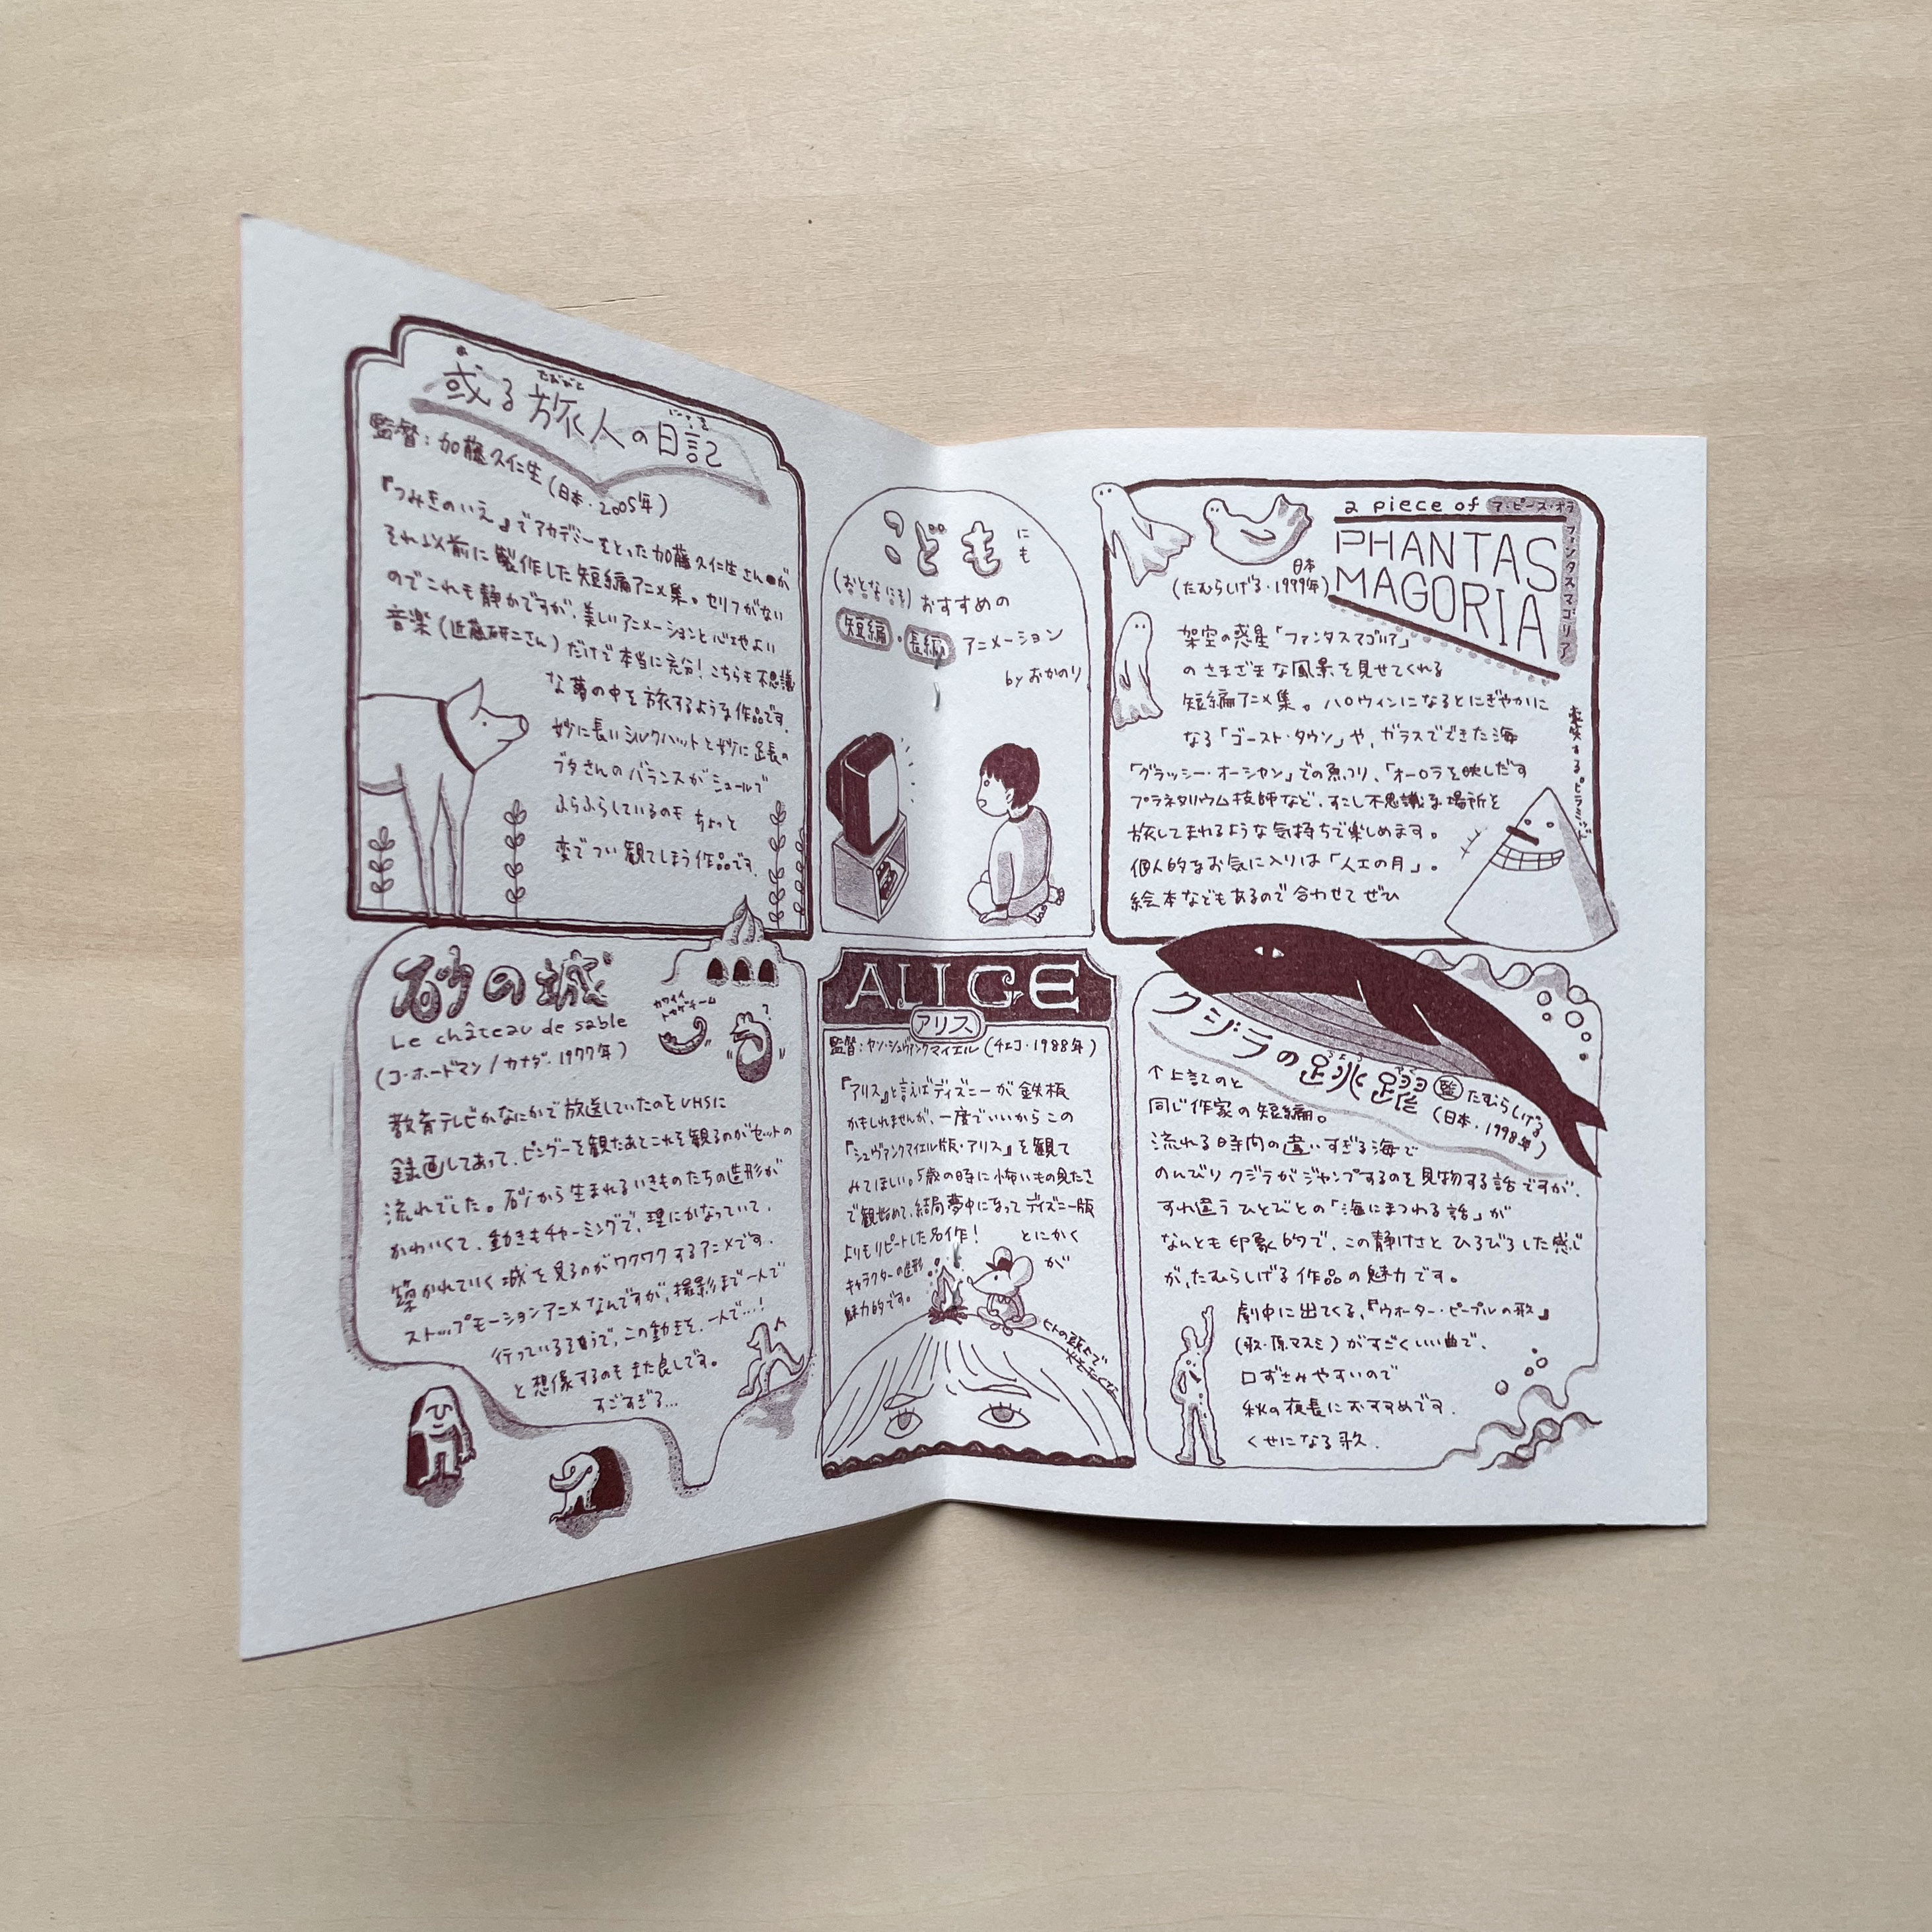 或る旅人の日記
たびびと
にっき
監督:加藤久仁生(日本・2005年)
『つみきのいえ』でアカデミーをとった加藤久仁生さんが
それ以前に製作した短編アニメ集。セリフがない
のでこれも静かですが、美しいアニメーションと心地よい
音楽(近藤研二さん)だけで本当に充分!こちらも不思議
な夢の中を旅するような作品です。
妙に長いシルクハットと妙に足長の
ブタさんのバランスがシュールで
ふらふらしているのもちょっと
変でつい観てしまう作品です。
こどもにも
(おとなにも)おすすめの
短編・長編アニメーション
byおかのり
a piece of
ア・ピース・オブ
ファンタスマゴリア
PHANTAS
MAGORIA
日本
(たむらしげる・1979年)
架空の惑星「ファンタスマゴリア」
のさまざまな風景を見せてくれる
短編アニメ集。ハロウィンになるとにぎやかに
なる「ゴースト・タウン」や、ガラスでできた海
「グラッシー・オーシャン」での魚つり、「オーロラを映しだす
プラネタリウム技師など、すこし不思議な場所を
旅してまわるような気持ちで楽しめます。
個人的なお気に入りは「人工の月」。
絵本などもあるので合わせてぜひ
変笑する。ピラミッド
砂の城
Le château de sable
(コ・ホードマン/カナダ・1977年)
カワイイ
教育テレビかなにかで放送していたのをVHSに
録画してあって、ピングーを観たあとこれを観るのがセットの
流れでした。砂から生まれるいきものたちの造形が
かわいくて、動きもチャーミングで、理にかなっていて、
築かれていく城を見るのがワクワクするアニメです。
ストップモーションアニメなんですが、撮影まで一人で
行っているそうで、この動きを、一人で…!
と想像するのもまた良しです。
すごすぎる…
ALICE
アリス
監督:ヤン・シュヴァンクマイエル(チェコ・1988年)
『アリス』と言えばディズニーが鉄板
かもしれませんが、一度でいいからこの
『シュヴァンクマイエル版・アリス』を観て
みてほしい。5歳の時に怖いもの見たさ
で観始めて、結局夢中になってディズニー版
よりもリピートした名作!とにかく
キャラクターの造形が
魅力的です。
ヒトの頭上で
クジラの跳躍
監たむらしげる
(日本・1998年)
↑上記のと
同じ作家の短編。
流れる時間の違いすぎる海で
のんびりクジラがジャンプするのを見物する話ですが、
すれ違うひとびとの「海にまつわる話」が
なんとも印象的で、この静けさとひろびろした感じ
が、たむらしげる作品の魅力です。
劇中に出てくる、『ウォーター・ピープルの歌』
(歌・原マスミ)がすごくいい曲で、
口ずさみやすいので
秋の夜長におすすめです。
くせになる歌。